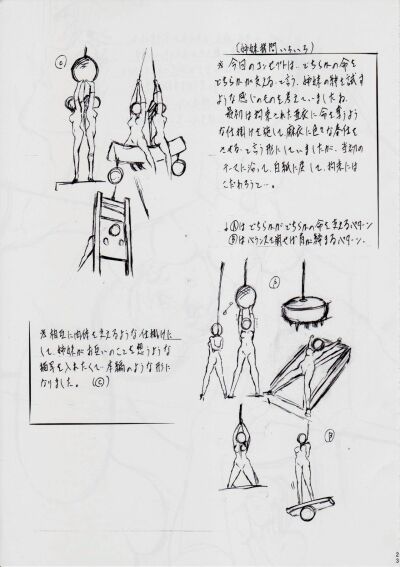 (姉妹拷問いろいろ)
※ 今回のコンセプトは…どちらかの命を
どちらかが支える…と言う、姉妹の絆を試す
ような感じのものを考えていましたね。
最初は拘束された亜衣に命を奪うよう
な仕掛けを施して麻衣に色々な奉仕を
させる…と言う形にしていましたが、当初の
に沿って、白紙に戻して、拘束には
こだわろうと…。
↓Ⓐはどちらかがどちらかの命を支えるパターン
Ⓑはバランスを崩せば首が締まるパターン。
Ⓒ
Ⓐ
Ⓑ
※相互に肉体を支えるような仕掛けに
して、姉妹がお互いのことを想うような
描写を入れたくて…本編のような形に
なりました。(Ⓒ)
23